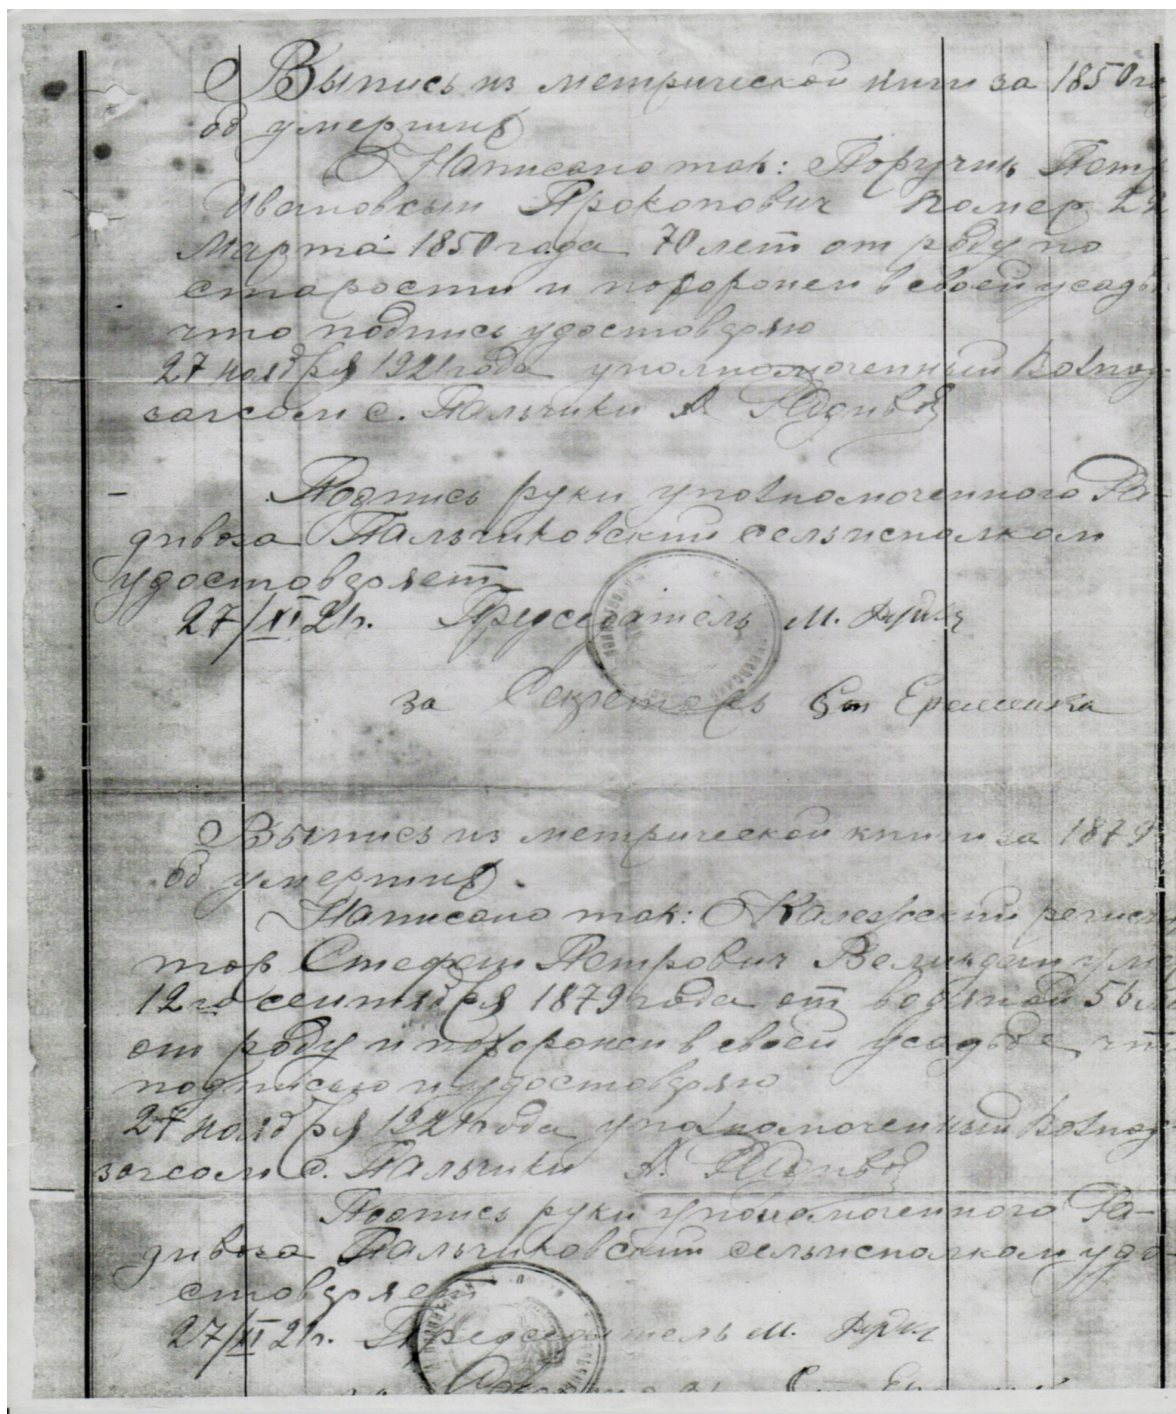 Выпись из метрической книги за 1850 го
об умерших
Написано так: Поручик Петр
Иванов сын Прокопович помер 22
Марта 1850 года 70 лет от роду по
старости и похоронен в своей усадь
что подпись удостоверяю
27 ноября 1921 года уполномоченный
загсом с. Пальчики А. Радивоз
Подпись руки уполномоченного Ра-
дивоза Пальчиковский сельисполком
удостоверяет
27/XI 21 г. Председатель М.
за Секретарь Еременка
Выпись из метрической книги за 1879
об умерших.
Написано так: Колежский регист
тор Стефан Петрович Велиндеин уме
12 го сентября 1879 года от водяной 56 л
от роду и похоронен в своей усадьбе, что
подписью и удостоверяю
27 ноября 1921 года уполномоченный
загсом с. Пальчики А. Радивоз
Подпись руки уполномоченного Ра-
дивоза Пальчиковский сельисполком удо-
стоверяет
27/XI 21 г. Председатель М.